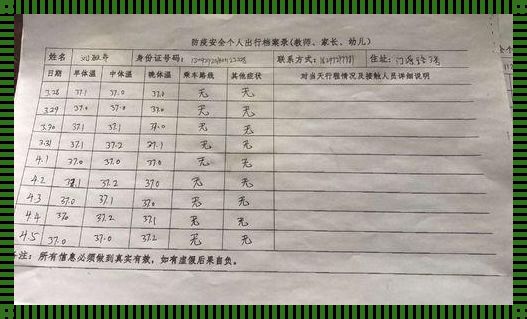 防疫安全个人出行档案录(教师、家长、幼儿)
姓名 身份证号码: 联系方式: 住址:
日期 早体温 中体温 晚体温 乘车路线 其他症状 对当天行租情况及接触人员详细说明
3.28 37.1 37.0 37.0 无 无
3.29 37.0 37.0 37.0 无 无
3.30 37.1 37.1 37.0 无 无
3.31 37.1 37.2 37.1 无 无
4.1 37.0 37.0 37.0 无 无
4.2 37.1 37.2 37.0 无 无
4.3 37.0 37.1 37.0 无 无
4.4 37.2 37.1 无 无
4.5 37.0 37.0 37.2 无 无
备注: 所有信息必须做到真实有效，如有虚假后果自负。